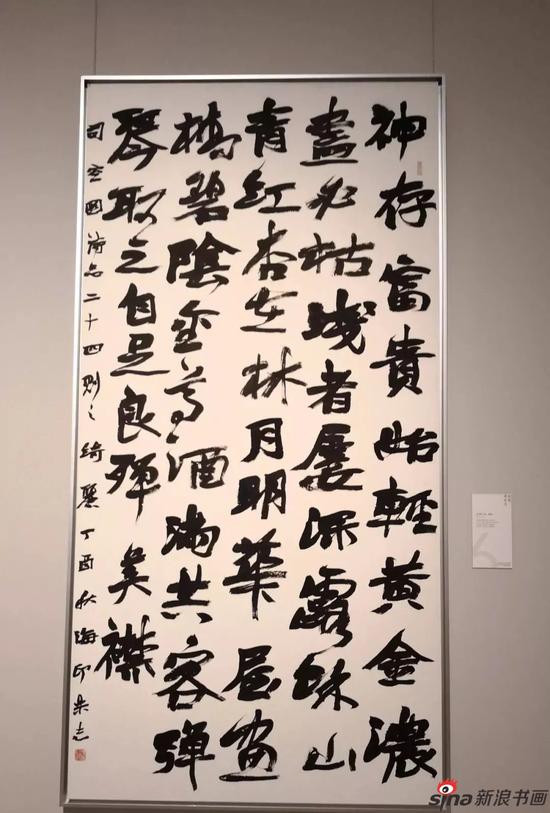 神存富貴始輕黃金濃
盡必枯淺者屢深露餘山
青紅杏在林月明華屋畫
橋碧陰金尊酒滿共客彈
琴取之自足良殫美襟
司空圖詩品二十四則之綺麗丁酉秋海印
sina新浪书画